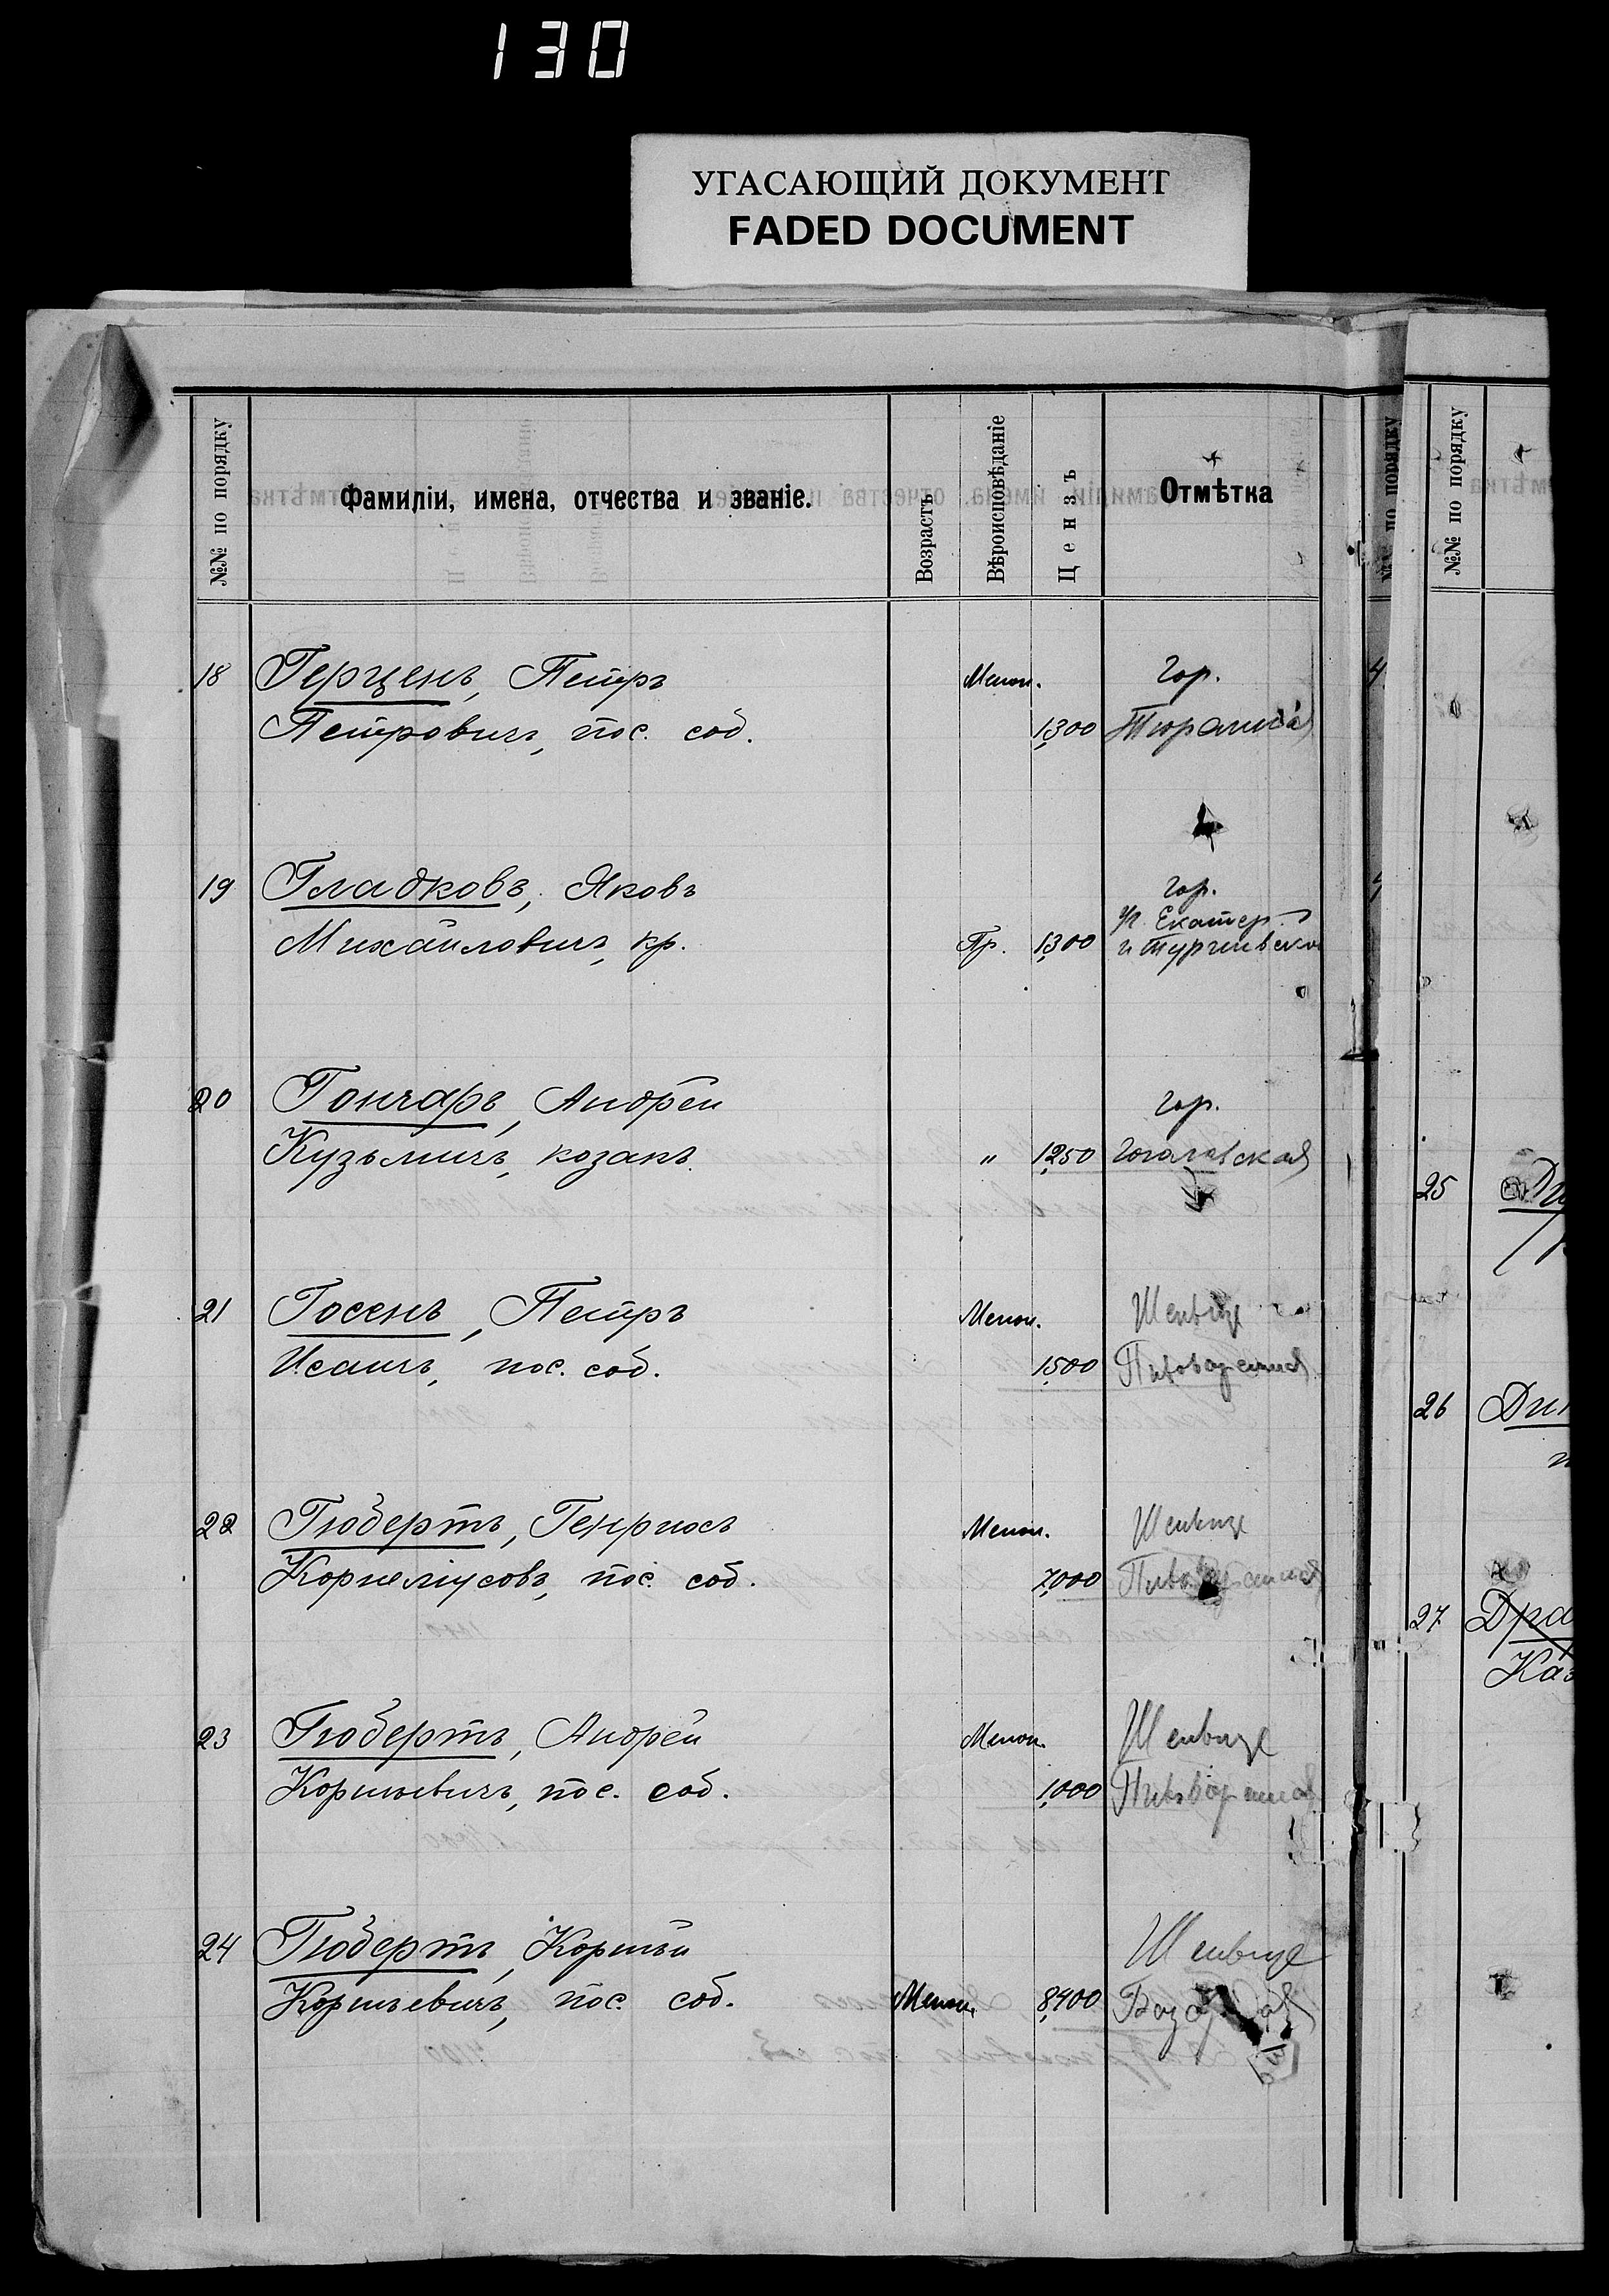 130
УГАСАЮЩИЙ ДОКУМЕНТ
FADED DOCUMENT
№№ по порядку
Фамиліи, имена, отчества и званіе.
Возрастъ
Вѣроисповѣданіе
Цензъ
Отмѣтка
18 Герценъ, Петръ Менон. Гор.
Петровичъ, пос. соб. 1300
19 Гладковъ, Яковъ Гор.
Екатер.
Михайловичъ, кр. Пр. 1300 и Тургеневской
20 Гончаръ, Андрей Гор.
Кузьмичъ, козакъ. " 1250 Гоголевская
21 Госенъ, Петръ Менон. Шенвизе
Исаичъ, пос. соб. 1500 Пивоваренная
22 Гюбертъ, Генрихъ Менон. Шенвизе
Корнеліусовъ, пос. соб. 7000 Пивоваренная
23 Гюбертъ, Андрей Менон. Шенвизе
Корнѣевичъ, пос. соб. 1000 Пивоваренная
24 Гюбертъ, Корнѣй Шенвизе
Корнѣевичъ, пос. соб. Менон. 8400
№№ по порядку
№№ по порядку
25
26
27